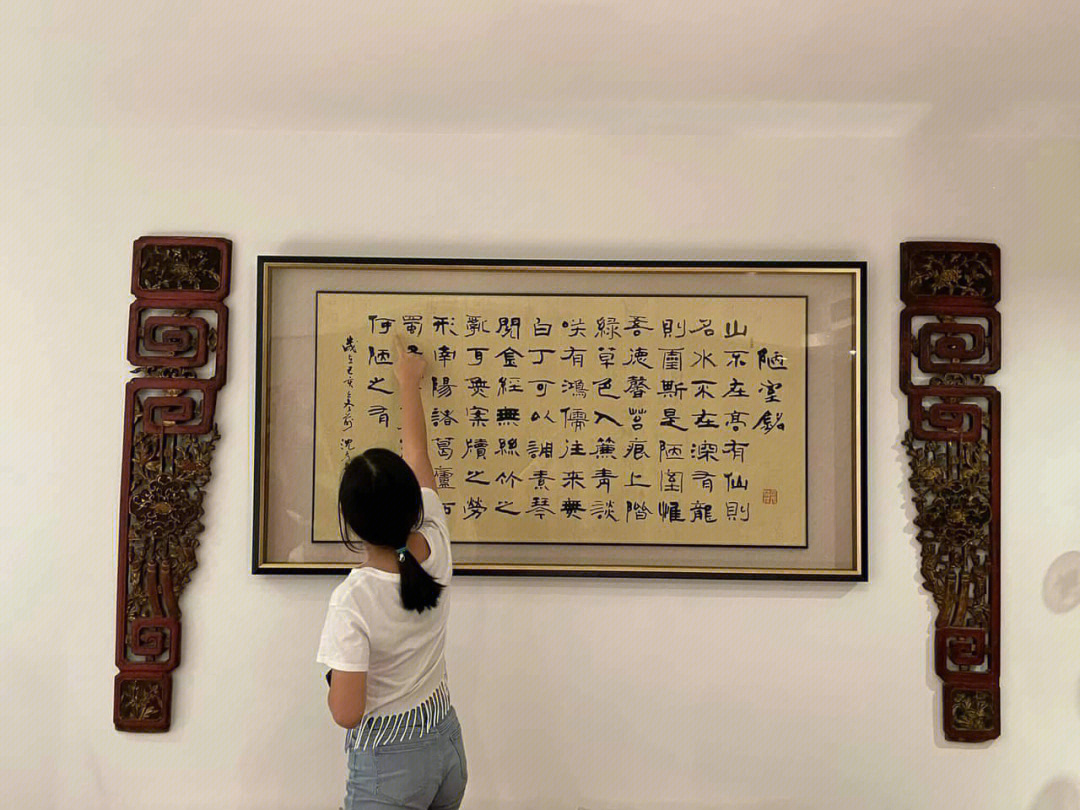 陋室銘
山不在高有仙則
名水不在深有龍
則靈斯是陋室惟
吾德馨苔痕上階
綠草色入簾青談
咲有鴻儒往來無
白丁可以調素琴
閱金經無絲竹之
亂耳無案牘之勞
形南陽諸葛廬西
蜀
何陋之有
歲在己亥冬 沈